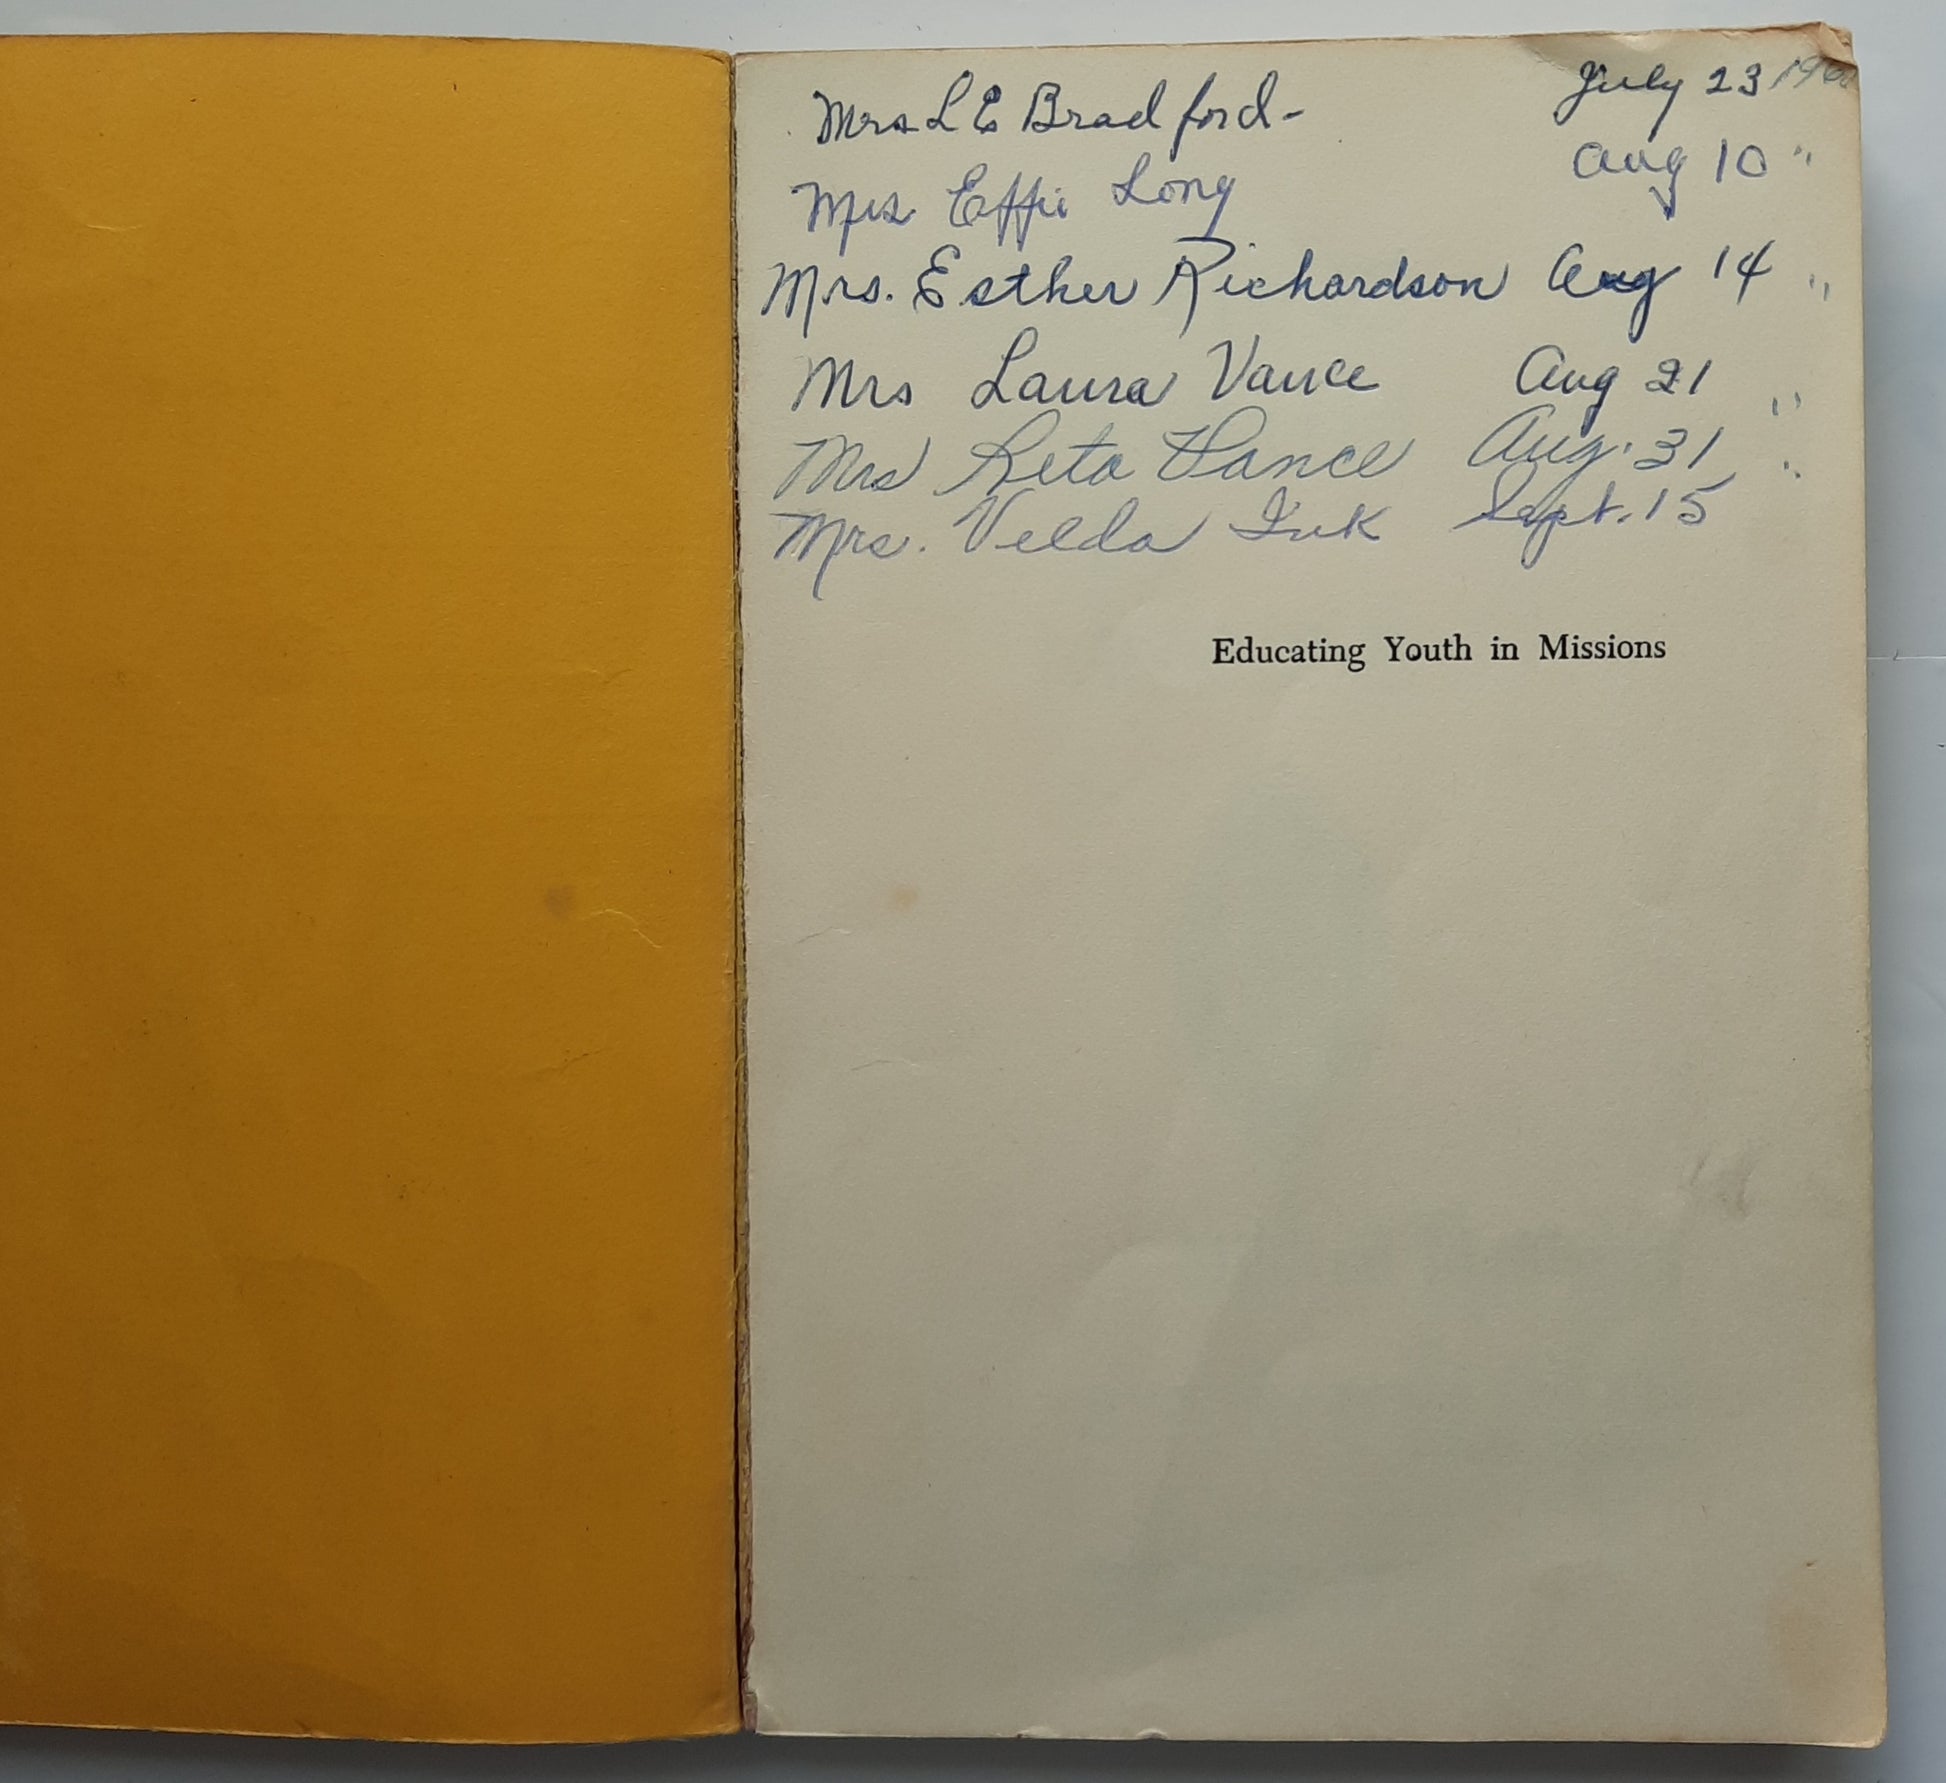 Mrs L E Bradford- July 23
Mrs Effie Long Aug 10 "
Mrs. Esther Richardson Aug 14 "
Mrs Laura Vance Aug 21 "
Mrs Reta Vance Aug. 31 "
Mrs. Velda Ink Sept. 15
Educating Youth in Missions